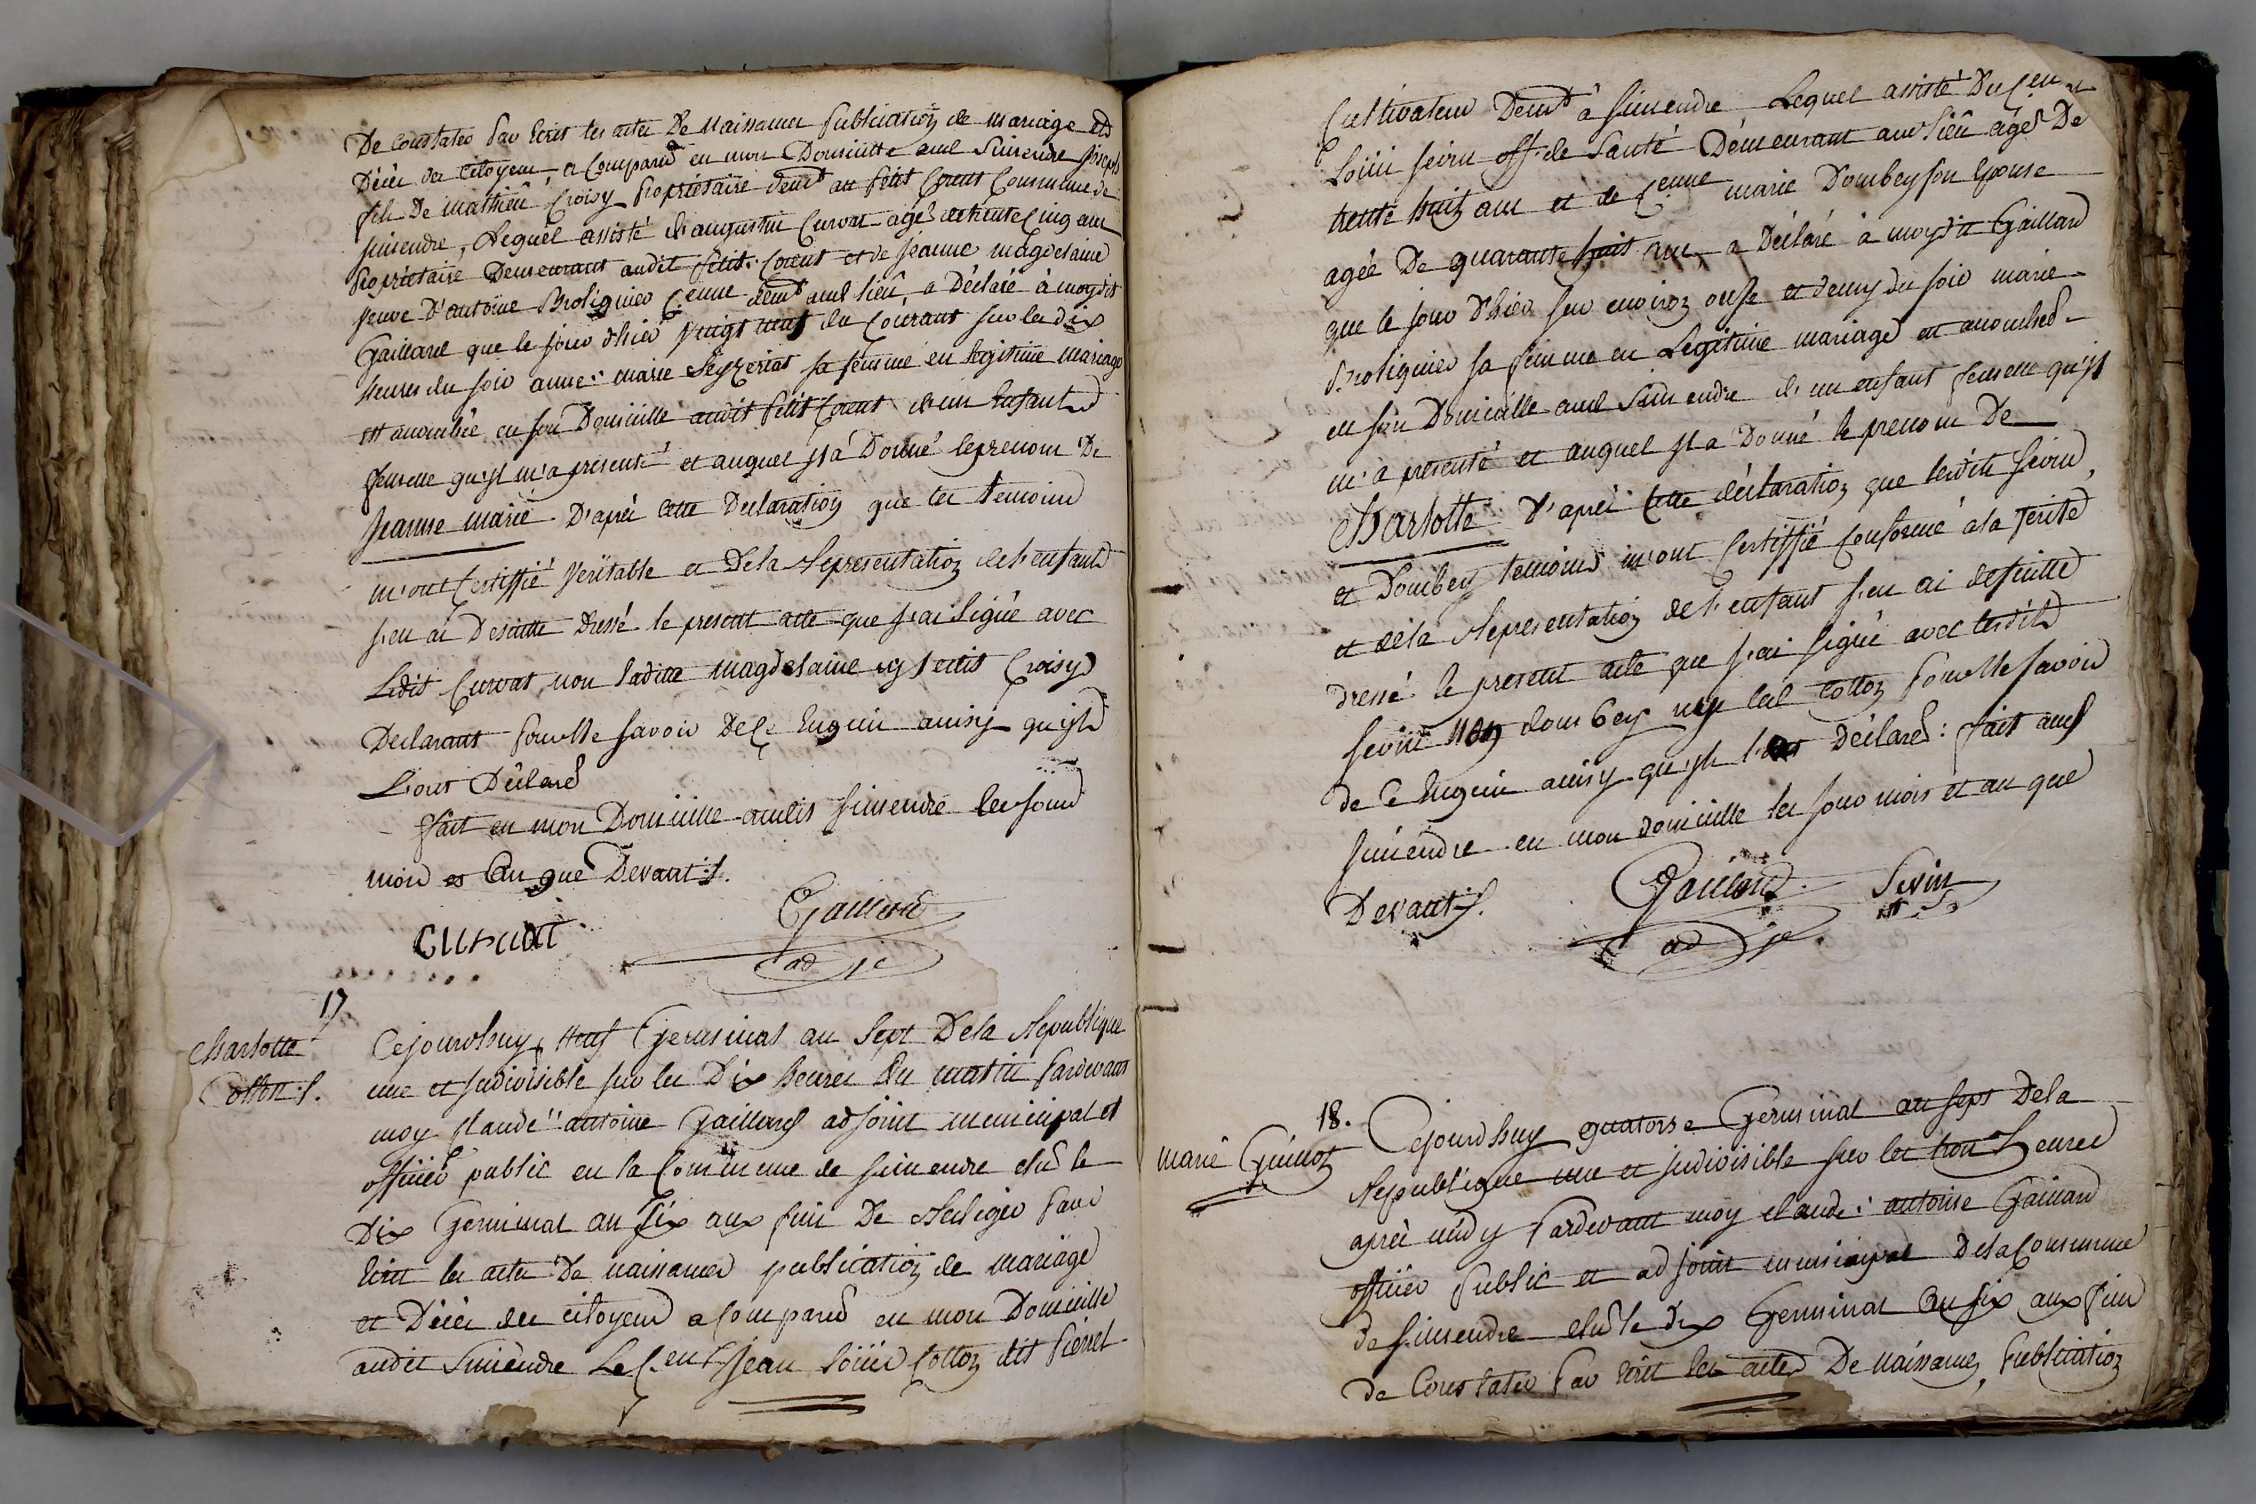 De Constater Par Ecrit les actes De Naissance Publication de mariage et
Décès des Citoyens, a Comparu en mon Domicille aud Simendre Joseph
fils De mathieu Croisy Propriétaire demt au petit Corent Commune de
Simendre, Lequel assisté d'augustin Curvat agé de trente Cinq ans
Propriétaire Demeurant audit petit Corent et de Jeanne magdelaine
veuve D'antoine Broliquier Cenne demt aud lieu, a Déclaré à moydit
Gaillard que le jour d'hier vingt neuf du Courant sur les dix
heures du soir anne marie Seyzeriat sa femme en legitime mariage
est accouchée en son Domicille audit petit Corent d'un Enfant
femelle qu'yl m'a présenté et auquel yl a Donné le prenom De
Jeanne marie. D'après cette Déclaration que les temoins
m'ont Certiffié Véritable et De la Representation de l'enfant
j'en ai Desuitte dressé le present acte que j'ai Signé avec
Ledit Curvat, non laditte magdelaine ny ledit Croisy
Declarant pour Ne savoir De Ce Enquis ainsy qu'yls
L'ont Déclaré
fait en mon Domicille audit Simendre les jour
mois et an que Devant.
Curvat
Gaillard
adj
17
Charlotte
Cotton.
Cejourdhuy, Neuf Germinal an Sept De la Republique
une et Indivisible sur les Dix heures du matin Pardevant
moy Claude antoine Gaillard adjoint municipal et
officier public en la Commune de Simendre elu le
Dix Germinal an Six aux fins De Rediger Par
Ecrit les actes De naissances publication de mariage
et Décès des citoyens a Comparu en mon Domicille
audit Simendre Le Cen Jean Louis Cotton dit Pierret
Cultivateur Demt à Simendre Lequel assisté Du Cen
Louis Sevin off. de Santé Demeurant aud lieu agé De
trente huit ans et de Cenne marie Dombey son Epouse
agée De quarante huit ans a Déclaré à moydit Gaillard
que le jour D'hier sur environ onse et demy du soir marie
Broliquier sa femme en Légitime mariage est accouchée
en son Domicille aud Simendre d'un enfant femelle qu'yl
m'a presenté et auquel yl a Donné le prenom De
Charlotte D'après Cette déclaration que lesdits Sevin
et Dombey temoins m'ont Certiffié Conforme à la Verité
et de la Representation de l'enfant j'en ai desuitte
dressé le present acte que j'ai signé avec ledit
Sevin non Dombey ny led Cotton pour Ne savoir
de Ce Enquis ainsy qu'yls l'ont Déclaré: fait aud
Simendre en mon domicille les jour mois et an que
Devant.
Gaillard
adj
Sevin
18.
marie Guinot
Cejourdhuy quatorse Germinal an sept De la
Republique une et Indivisible sur les trois heures
après midy Pardevant moy Claude antoine Gaillard
officier Public et adjoint municipal De la Commune
de Simendre elu le dix Germinal an Six aux fins
de Constater Par Ecrit les actes De naissances, Publication